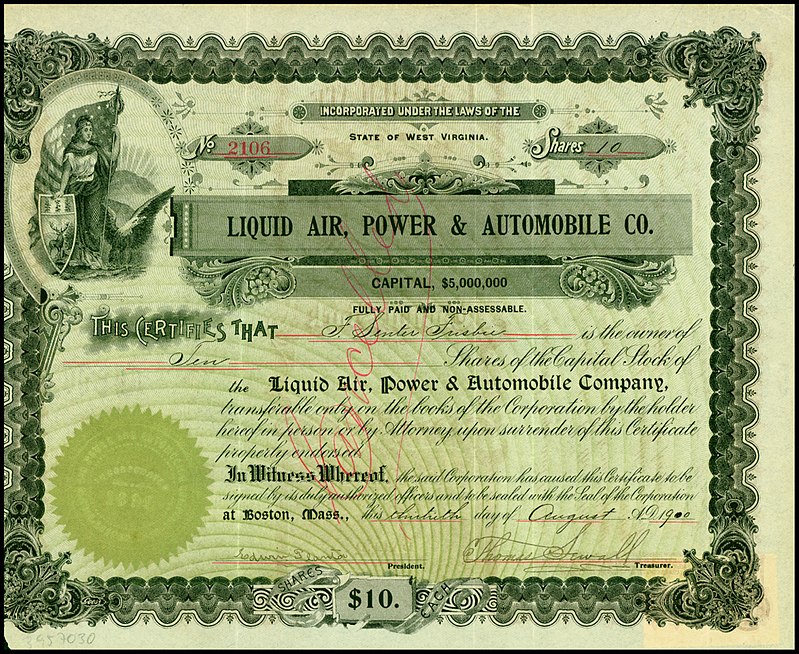 INCORPORATED UNDER THE LAWS OF THE
STATE OF WEST VIRGINIA.
No 2106
Shares 10
LIQUID AIR, POWER & AUTOMOBILE CO.
CAPITAL, $5,000,000
FULLY PAID AND NON-ASSESSABLE.
THIS CERTIFIES THAT F. Senter is the owner of
Ten Shares of the Capital Stock of
the Liquid Air, Power & Automobile Company,
transferable only on the books of the Corporation by the holder
hereof in person or by Attorney, upon surrender of this Certificate
properly endorsed.
In Witness Whereof, the said Corporation has caused this Certificate to be
signed by its duly authorized officers and to be sealed with the Seal of the Corporation
at Boston, Mass., this thirtieth day of August A.D. 1900
Cancelled
Edwin
President.
Thomas Sewall
Treasurer.
SHARES $10. EACH
3957030